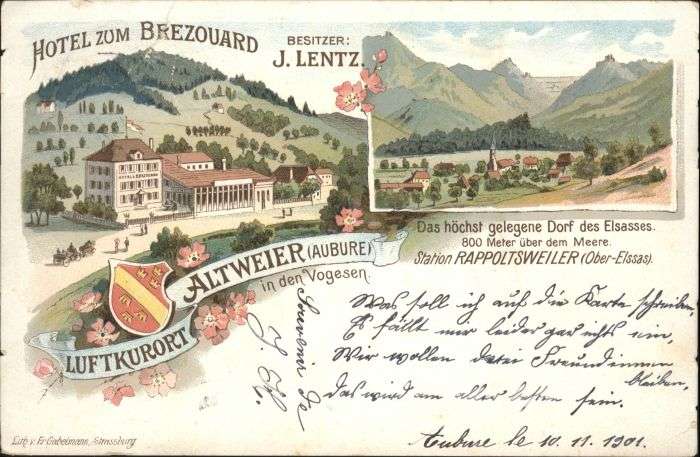 HOTEL ZUM BREZOUARD
BESITZER:
J. LENTZ.
Das höchst gelegene Dorf des Elsasses.
800 Meter über dem Meere.
Station RAPPOLTSWEILER (Ober-Elssas).
ALTWEIER (AUBURE)
in den Vogesen.
LUFTKURORT
Was soll ich auf die Karte schreiben,
Es fällt mir leider gar nichts ein,
Wir wollen drei Freundinnen
bleiben,
das wird am aller besten sein.
Aubure le 10. 11. 1901.
Souvenir de
J. H.
Lith. v. Fr. Gabelmann, Strassburg